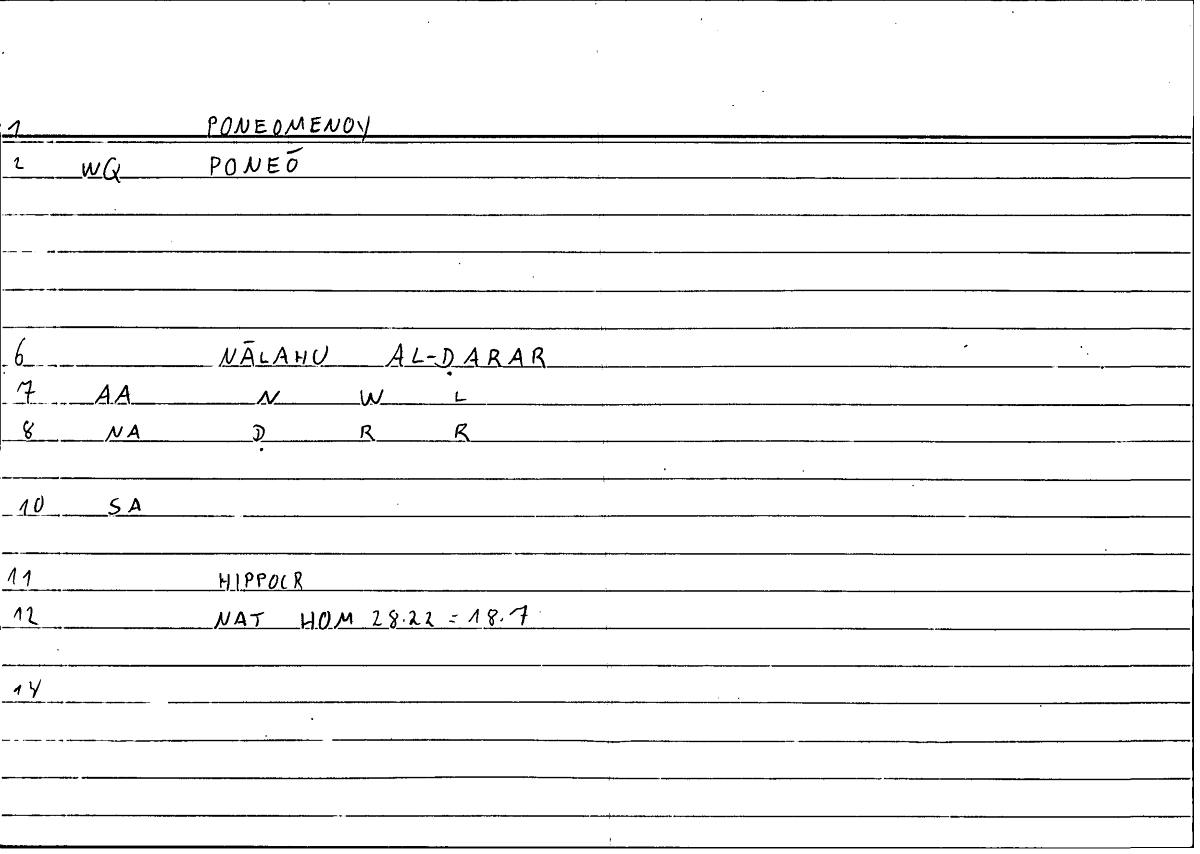 1 PONEOMENOY
2 WQ PONEŌ
6 NĀLAHU AL-ḌARAR
7 AA N W L
8 NA Ḍ R R
10 SA
11 HIPPOCR
12 NAT HOM 28.22 = 18.7
14